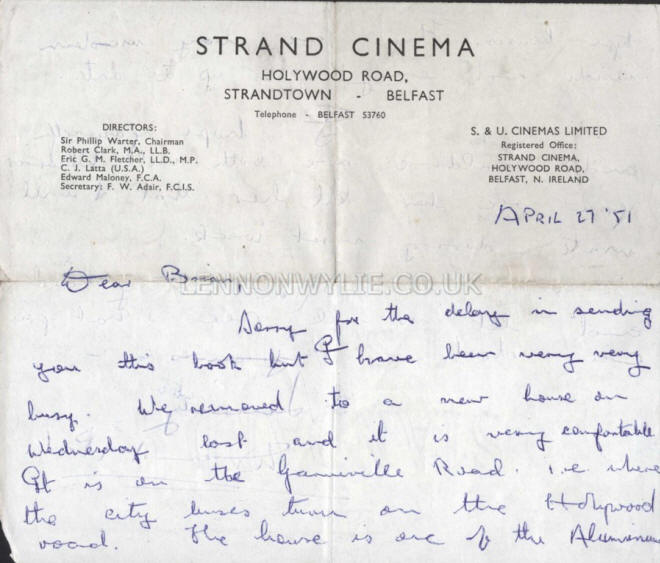 STRAND CINEMA
HOLYWOOD ROAD,
STRANDTOWN - BELFAST
Telephone - BELFAST 53760
DIRECTORS:
Sir Phillip Warter, Chairman
Robert Clark, M.A., LL.B.
Eric G. M. Fletcher, LL.D., M.P.
C. J. Latta (U.S.A.)
Edward Maloney, F.C.A.
Secretary: F. W. Adair, F.C.I.S.
S. & U. CINEMAS LIMITED
Registered Office:
STRAND CINEMA,
HOLYWOOD ROAD,
BELFAST, N. IRELAND
APRIL 27 '51
Dear Brian,
LENNONWYLIE.CO.UK
Sorry for the delay in sending
you this book but I have been very very
busy. We removed to a new house on
Wednesday last and it is very comfortable
It is on the Garnerville Road. i.e where
the city buses turn on the Holywood
road. The house is one of the Aluminium